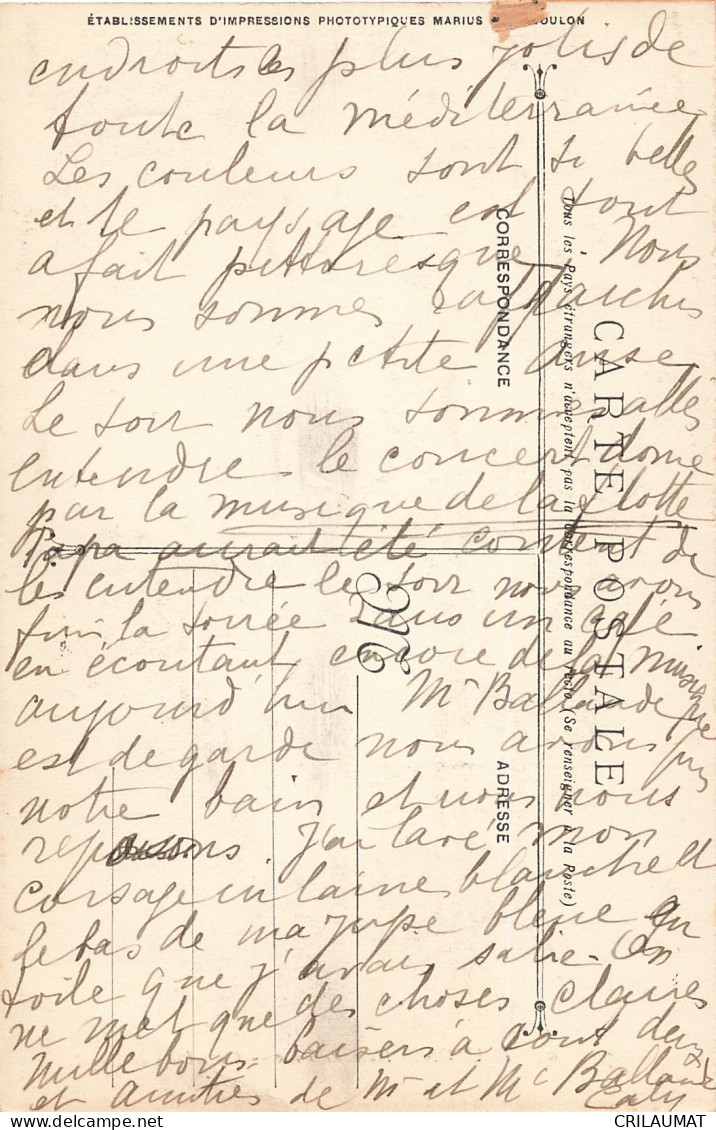 ÉTABLISSEMENTS D'IMPRESSIONS PHOTOTYPIQUES MARIUS OULON
endroits les plus jolis de
toute la méditerranée
Les couleurs sont si belles
et le paysage est tout
a fait pittoresque. Nous
nous sommes
dans une petite anse.
Le soir nous sommes allés
entendre le concert donné
par la musique de la flotte
Papa aurait été content de
les entendre le soir nous avons
fini la soirée dans un café
en écoutant encore de la musique
aujourd'hui Mr Ballande
est de garde nous avons pris
notre bain et nous nous
reposons J'ai lavé mon
corsage en laine blanche et
le bas de ma jupe bleue en
toile que j'avais salie. On
ne met que des choses claires
Mille bons baisers à tout deux
et amitiés de Mr et Me Ballande
CARTE POSTALE
Tous les Pays étrangers n'acceptent pas la Correspondance au recto (Se renseigner à la Poste)
CORRESPONDANCE
ADRESSE
M
CRILAUMAT